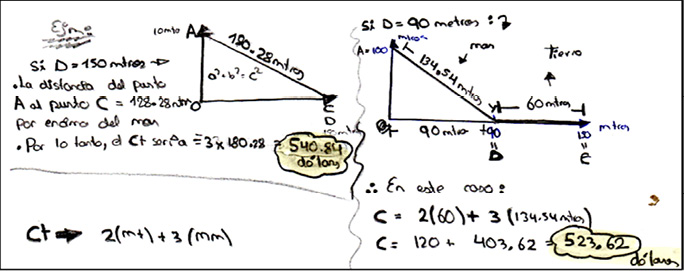 Ejm:
Si D = 150 mtros →
• La distancia del punto
A al punto C = 128.28 mtrs
por encima del mar
• Por lo tanto, el Ct sería = 3 x 180.28 = 540.84
dólares
A
180.28 mtros
a² + b² = c²
C
D
Ct ➡ 2(mt) + 3(mm)
Si D = 90 metros : ?
mtros
A = 100
134.54 mtros
mar
Tierra
60 mtros
90 mtro
90
150
mtros
D
C
∴ En este caso:
C = 2(60) + 3(134.54 mtros)
C = 120 + 403,62 = 523,62
dólares